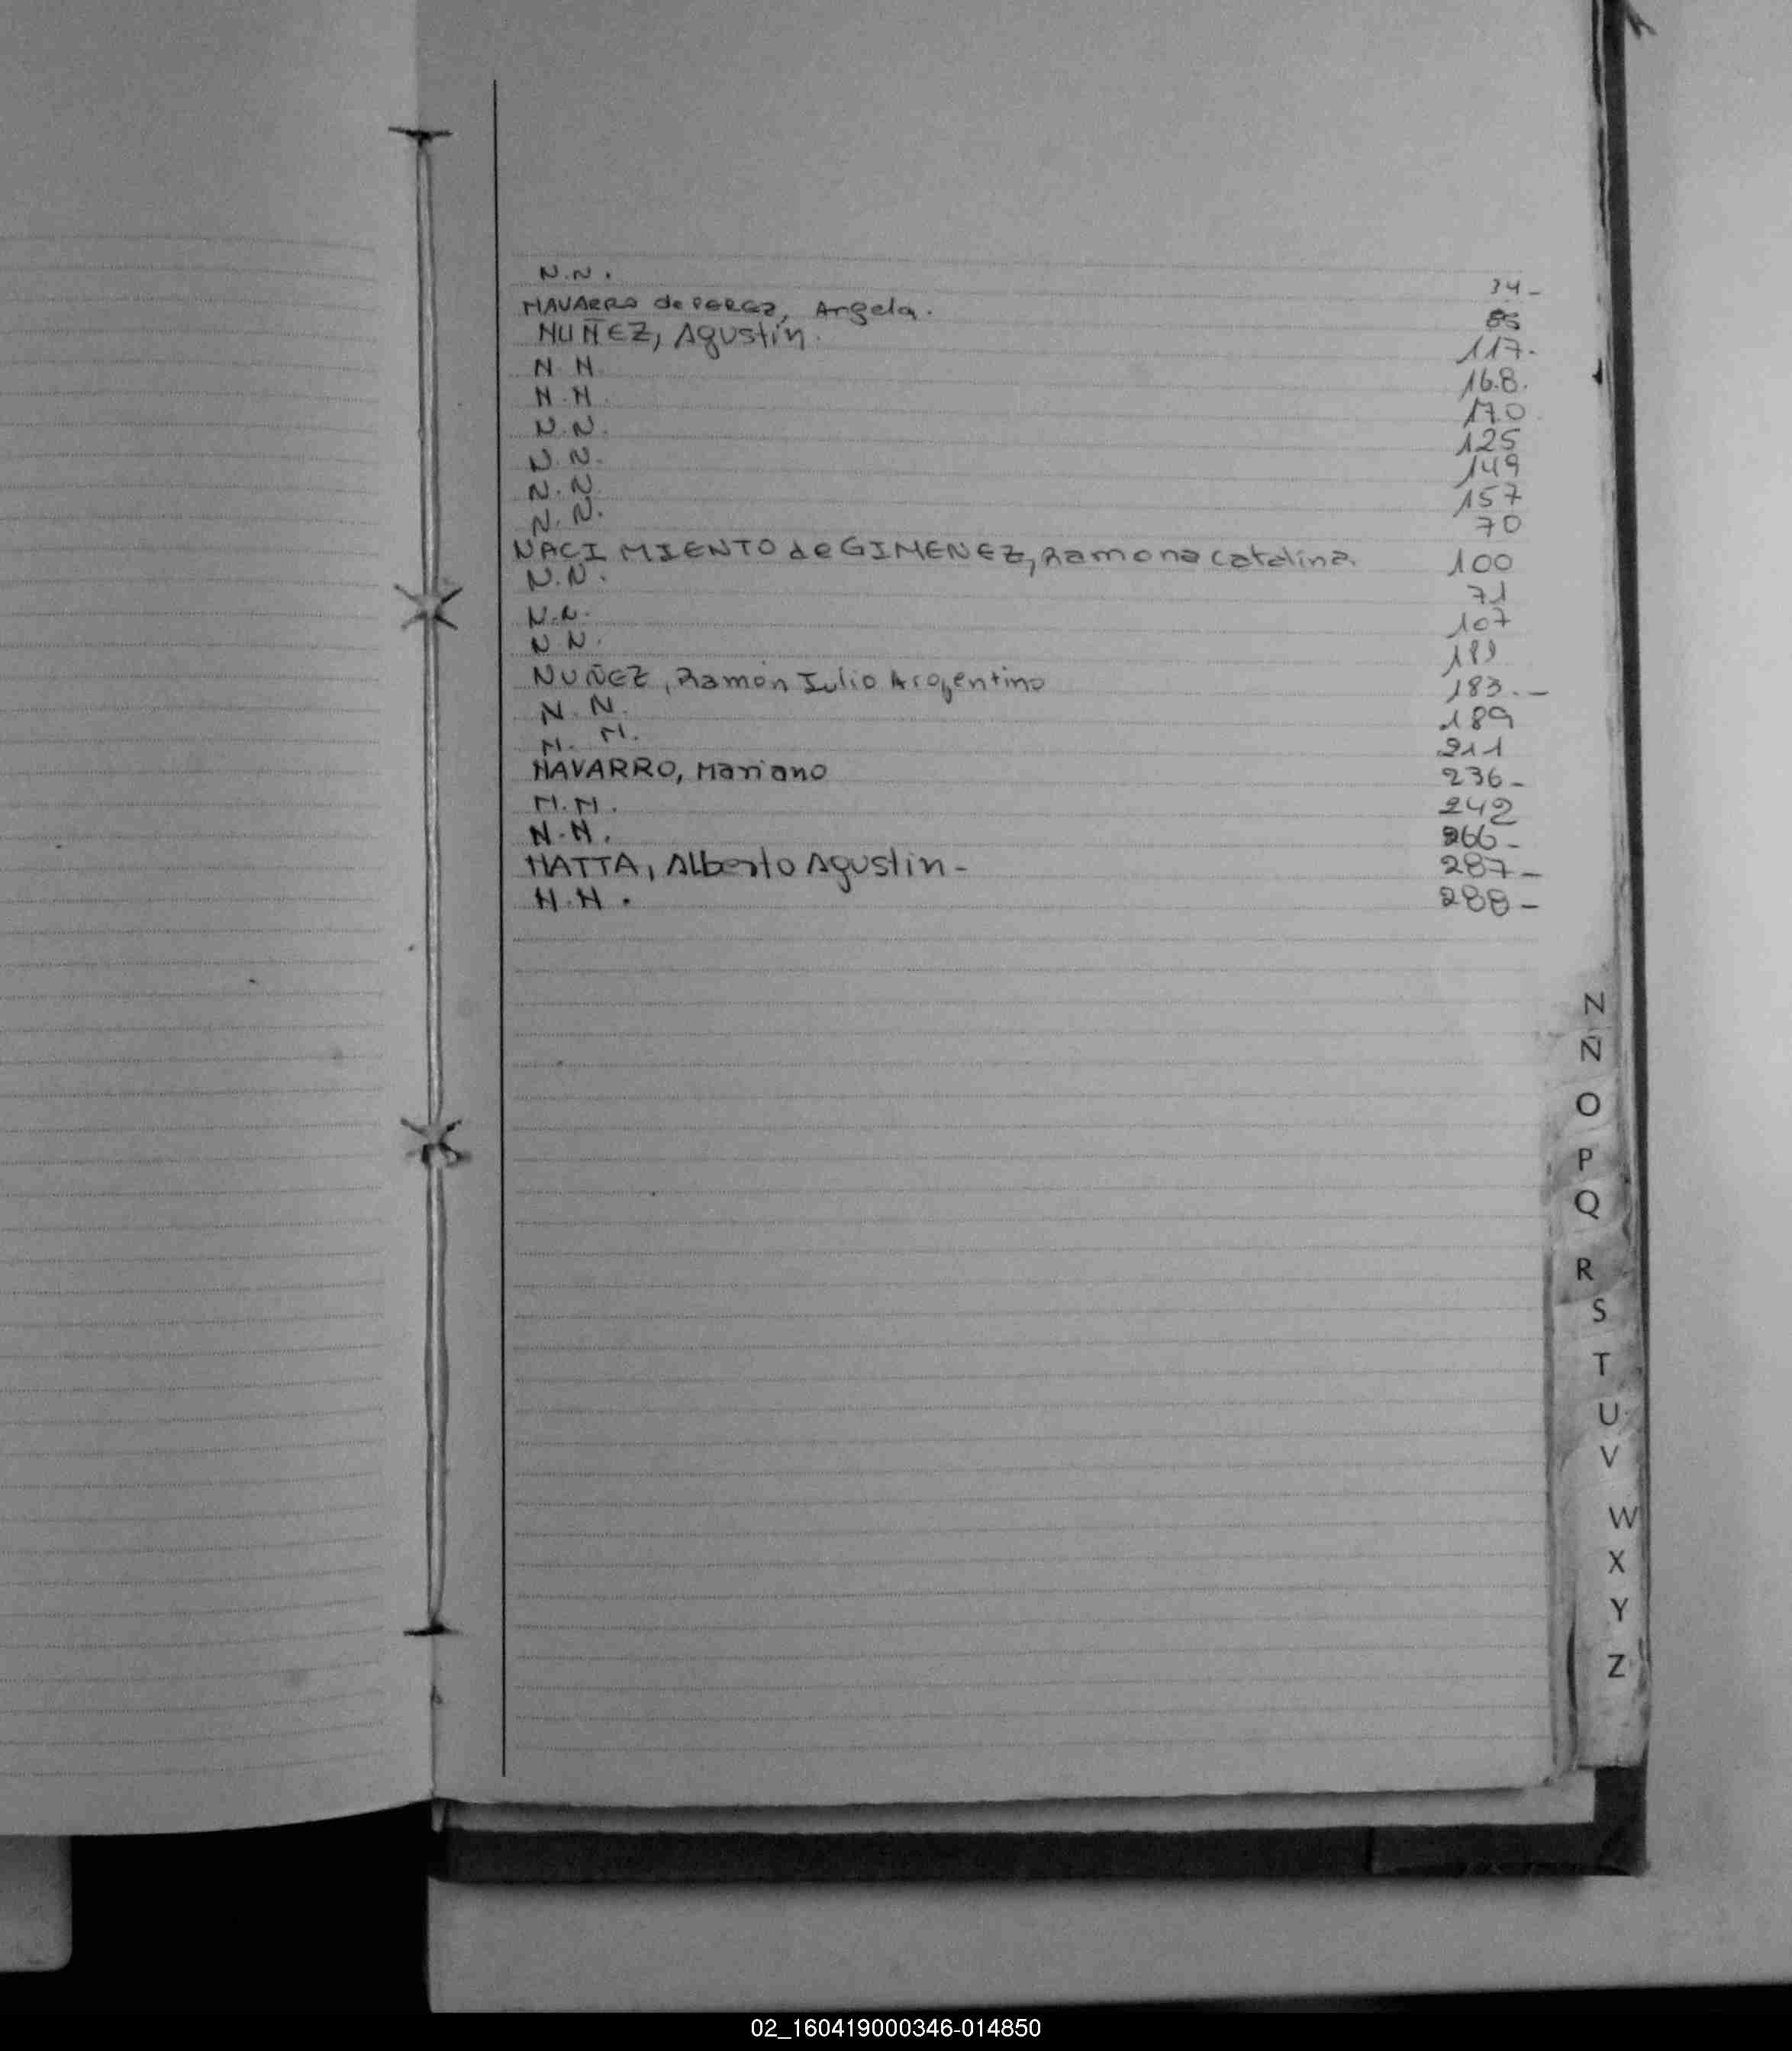 N.N. 34-
NAVARRO de PEREZ, Argela. 85
NUÑEZ, Agustín. 117.
N.N. 168.
N.N. 170
N.N. 125
N.N. 149
N.N. 157
N.N. 70
NACIMIENTO de GIMENEZ, Ramona Catalina. 100
N.N. 71
N.N. 107
N.N.
NUÑEZ, Ramón Julio Argentino 183.-
N.N. 189
N.N. 211
NAVARRO, Mariano 236-
N.N. 242
N.N. 266-
NATTA, Alberto Agustin- 287-
N.N. 288-
N
Ñ
O
P
Q
R
S
T
U
V
W
X
Y
Z
02_160419000346-014850